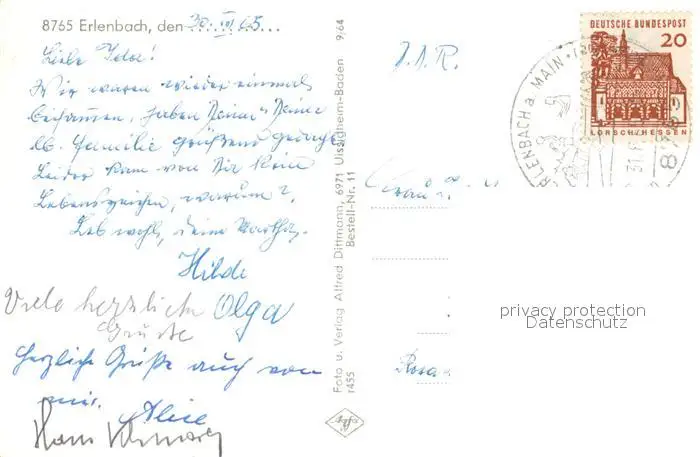 8765 Erlenbach, den 30. III 65
Liebe Ida!
Wir waren wieder einmal
beisammen, haben Deiner u. Deiner
lb. Familie grüßend gedacht
Leider kam von Dir kein
Lebenszeichen, warum?
Leb wohl, deine Martha.
Hilde
Viele herzliche Olga
Grüße
Herzliche Grüße auch von
mir. Alice
Hans
Foto u. Verlag Alfred Dittmann, 6971 Uissigheim-Baden 9/64
r455 Bestell-Nr. 11
DEUTSCHE BUNDESPOST
20
LORSCH/HESSEN
ERLENBACH a. MAIN
Frau
Rosa
privacy protection
Datenschutz